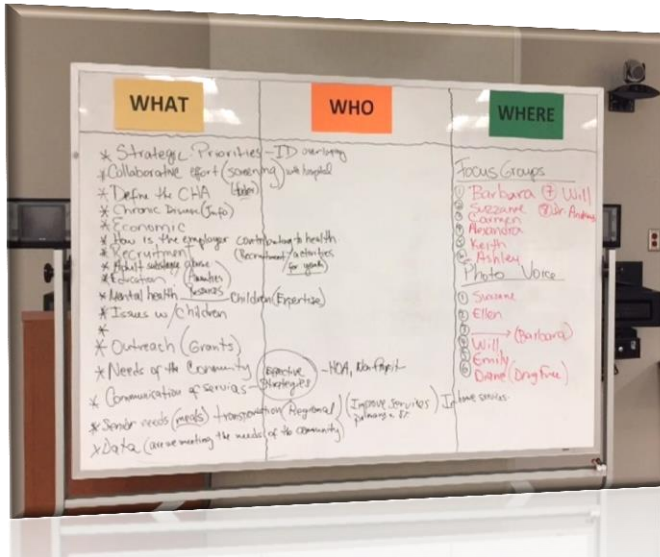 WHAT
WHO
WHERE
* Strategic Priorities - ID overlapping
* Collaborative effort (screening) with hospital
* Define the CHA
* Chronic Disease (Info)
* Economic
* How is the employer contributing to health
* Recruitment (Recruitment/activities for youth)
* Adult substance abuse
* Education
Resources
* Mental health Children (Expertize)
* Issues w/ children
*
* Outreach (Grants)
* Needs of the Community
Effective Strategies
- HOA, Non Profit
* Communication of services
* Senior needs (meals) transportation (Regional) (Improve services) In home services
* Data (are we meeting the needs of the community)
Focus Groups
① Barbara ⑦ Will
② Suzzanne ⑧ Dr.
Carmen
Alexandra
Keith
Ashley
Photo Voice
① Suzanne
② Ellen
③ → (Barbara)
④ Will
⑤ Emily
⑥ Diane (Drug Free)